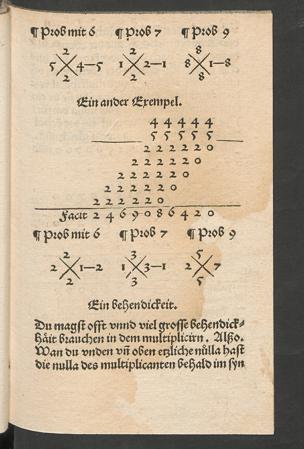 ¶ Prob mit 6 ¶ Prob 7 ¶ Prob 9
2 2 8
5 4—5 1 2—1 8 1—8
2 2 8
Ein ander Exempel.
4 4 4 4 4
5 5 5 5 5
2 2 2 2 2 0
2 2 2 2 2 0
2 2 2 2 2 0
2 2 2 2 2 0
2 2 2 2 2 0
Facit 2 4 6 9 0 8 6 4 2 0
¶ Prob mit 6 ¶ Prob 7 ¶ Prob 9
2 3 5
2 1—2 1 3—1 2 7
2 3 5
Ein behendickeit.
Du magst offt vnnd viel grosse behendick-
häit brauchen in dem multiplicirn. Alßo.
Wan du vnden vñ oben etzliche nulla hast
die nulla des multiplicanten behald im syn